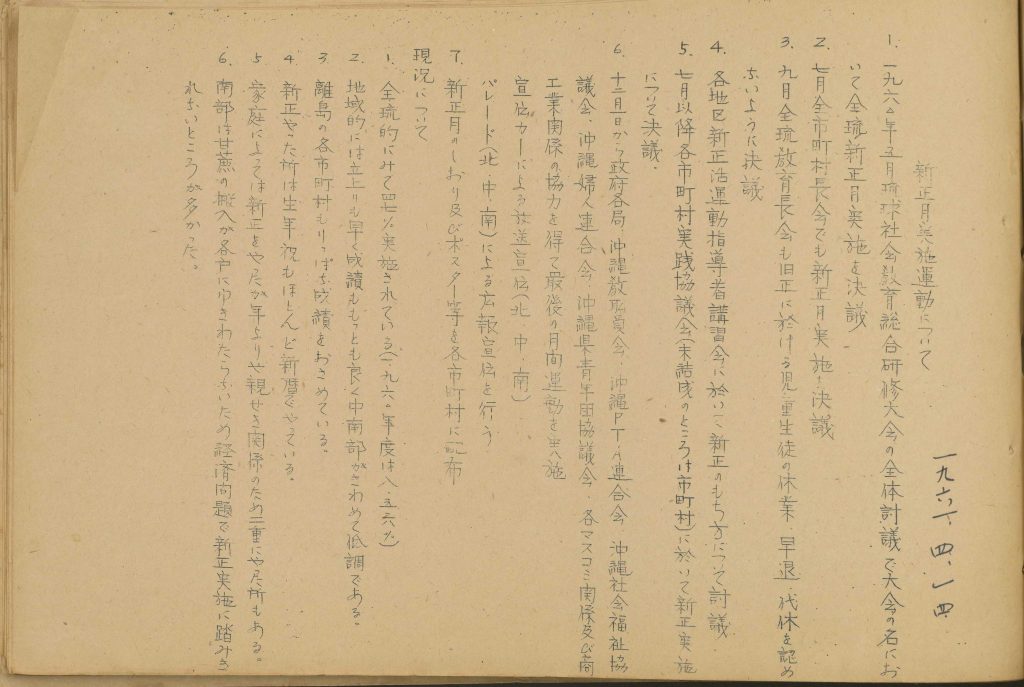 一九六一、四、一四
新正月実施運動について
1. 一九六〇年五月琉球社会教育総合研修大会の全体討議で大会の名にお
いて全琉新正月実施を決議
2. 七月全市町村長会でも新正月実施を決議
3. 九月全琉教育長会も旧正に於ける児童生徒の休業、早退、代休を認め
ないように決議
4. 各地区新正活運動指導者講習会に於いて新正のもち方について討議
5. 七月以降各市町村実践協議会(未結成のところは市町村)に於いて新正実施
について決議.
6. 十二月一日から政府各局、沖縄教職員会、沖縄PTA連合会、沖縄社会福祉協
議会、沖縄婦人連合会、沖縄県青年団協議会、各マスコミ関係及び商
工業関係の協力を得て最後の月間運動を実施
宣伝カーによる放送宣伝(北、中、南)
パレード(北、中、南)による広報宣伝を行う
7. 新正月のしおり及びポスター等を各市町村に配布
現況について
1. 全琉的にみて %実施されている(一九六〇年度は八.五六%)
2. 地域的には立上りも早く成績ももっとも良く中南部がきわめて低調である。
3 離島の各市町村もりっぱな成績をおさめている。
4. 新正やった所は生年祝もほとんど新暦でやっている。
5 家庭によっては新正をやたが年よりや親せき関係のため二重にやた所もある。
6. 南部は甘蔗の搬入が各戸に巾きわたらないため経済問題で新正実施に踏みき
れないところが多かった。